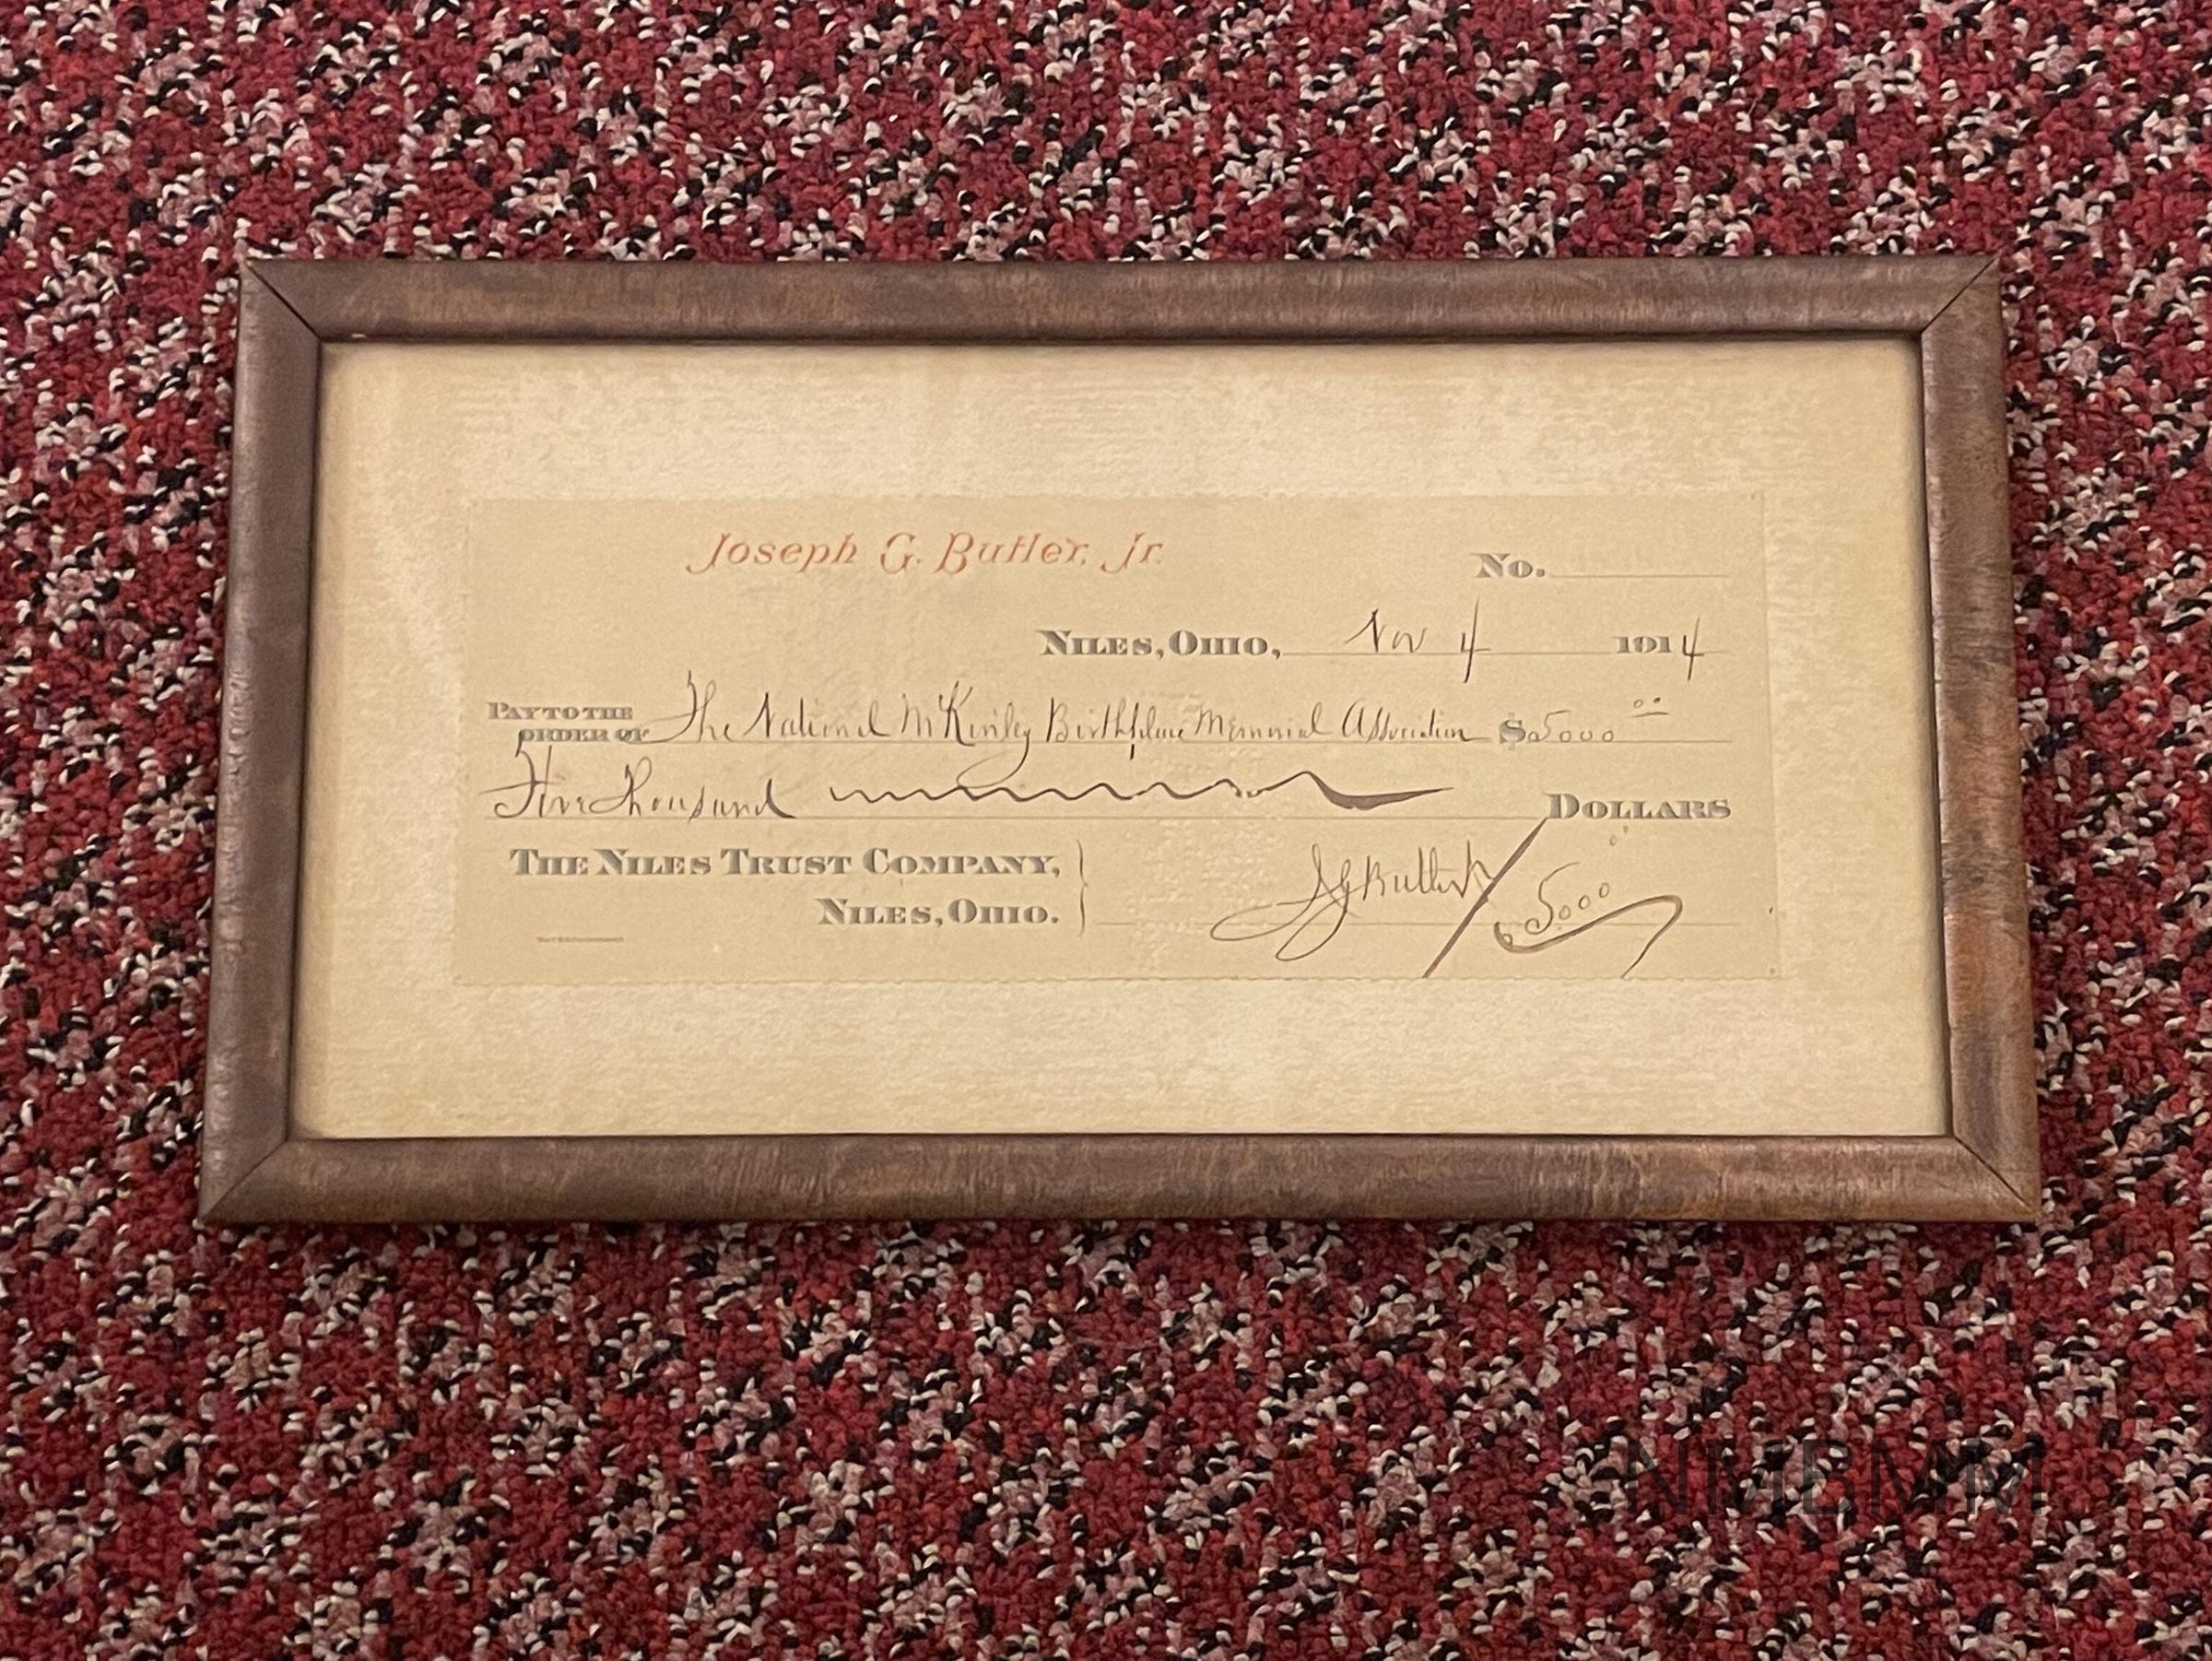 Joseph G. Butler, Jr.
No.
Niles, Ohio, Nov 4 1914
Pay to the order of The National McKinley Birthplace Memorial Association $5000 00
Five Thousand Dollars
The Niles Trust Company,
Niles, Ohio.
J G Butler Jr
5000 00
NMBMM